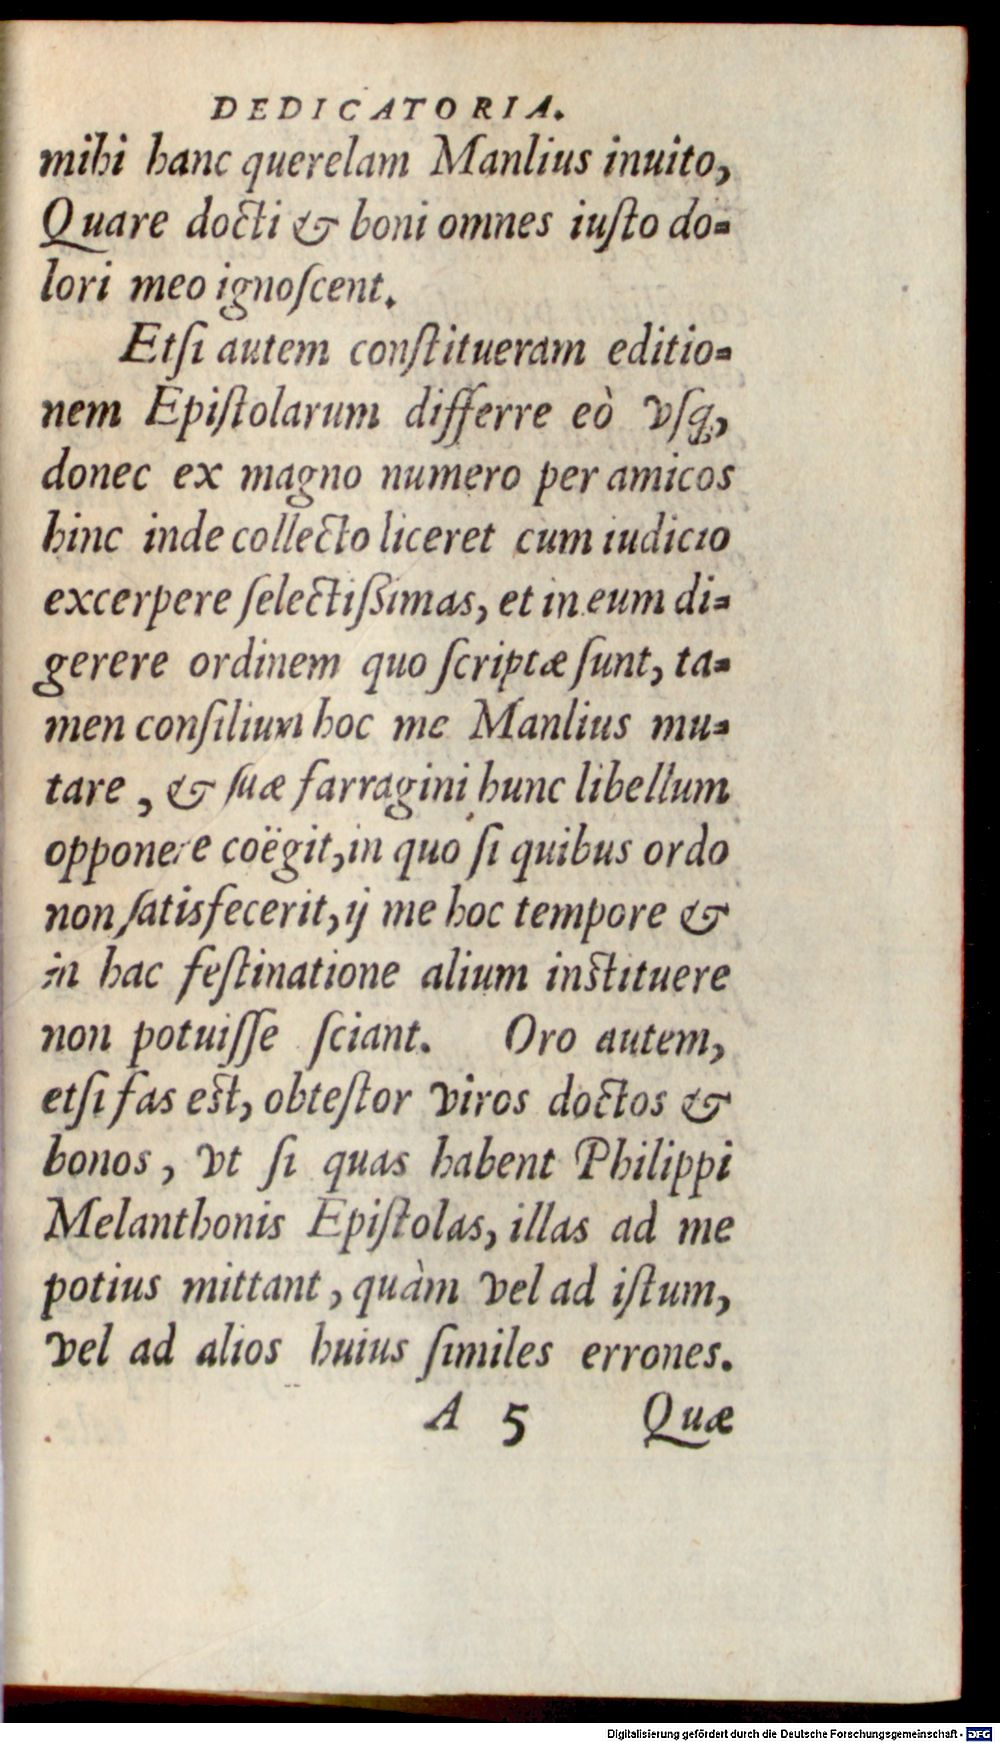 DEDICATORIA.
mihi hanc querelam Manlius inuito,
Quare docti & boni omnes iuſto do=
lori meo ignoſcent.
Etſi autem conſtitueram editio=
nem Epiſtolarum differre eò vſq́,
donec ex magno numero per amicos
hinc inde collecto liceret cum iudicio
excerpere ſelectiſsimas, et in eum di=
gerere ordinem quo ſcriptæ ſunt, ta=
men conſilium hoc me Manlius mu=
tare, & ſuæ farragini hunc libellum
opponere coëgit, in quo ſi quibus ordo
non ſatisfecerit, ij me hoc tempore &
in hac feſtinatione alium inſtituere
non potuiſſe ſciant. Oro autem,
etſi fas eſt, obteſtor viros doctos &
bonos, vt ſi quas habent Philippi
Melanthonis Epiſtolas, illas ad me
potius mittant, quàm vel ad iſtum,
vel ad alios huius ſimiles errones.
A 5 Quæ
Digitalisierung gefördert durch die Deutsche Forschungsgemeinschaft - DFG